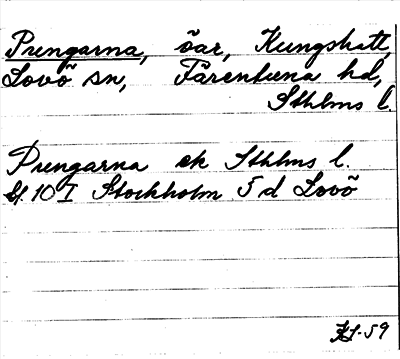 Pungarna, öar, Kungshatt,
Lovö sn, Färentuna hd,
Sthlms l.
Pungarna ek Sthlms l.
bl. 10 I Stockholm 5 d Lovö
-59